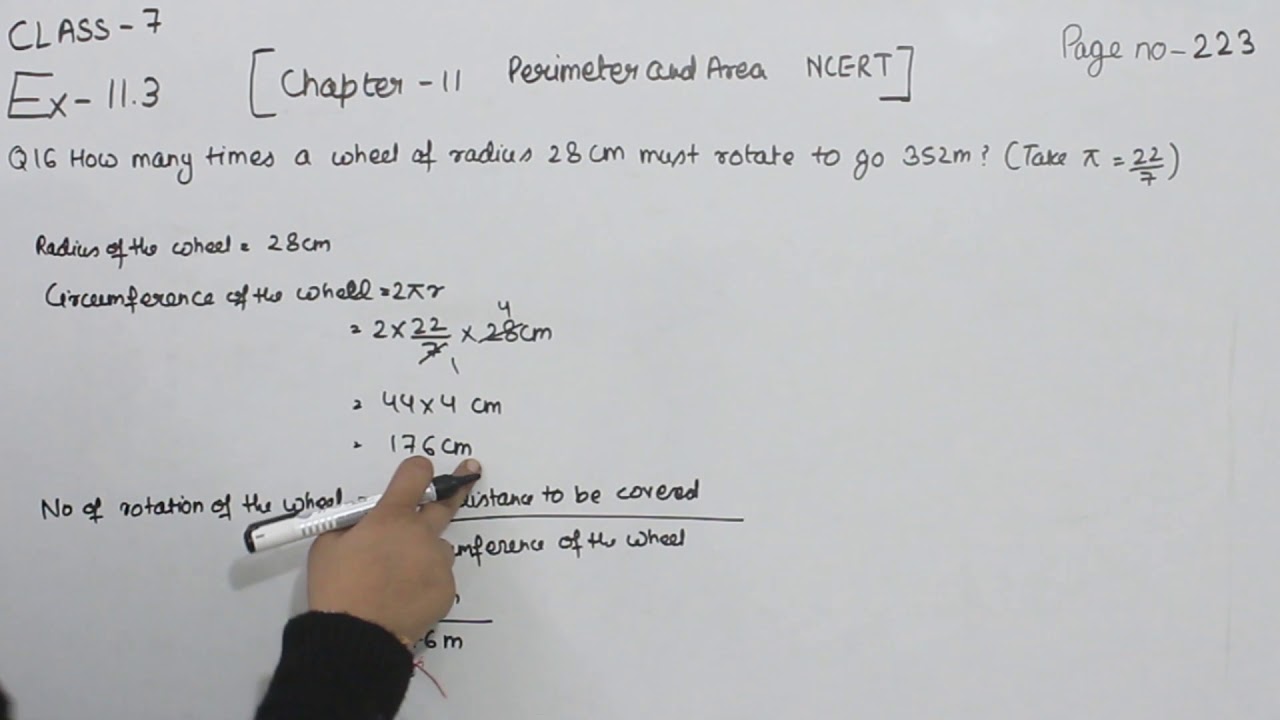 CLASS - 7
Page no - 223
Ex - 11.3 [Chapter - 11 Perimeter and Area NCERT]
Q16 How many times a wheel of radius 28 cm must rotate to go 352m? (Take π = 22/7)
Radius of the wheel = 28cm
Circumference of the wheel = 2πr
= 2 × 22/7 × 28cm 4 1
= 44 × 4 cm
= 176 cm
No of rotation of the wheel = distance to be covered
mference of the wheel
.6 m